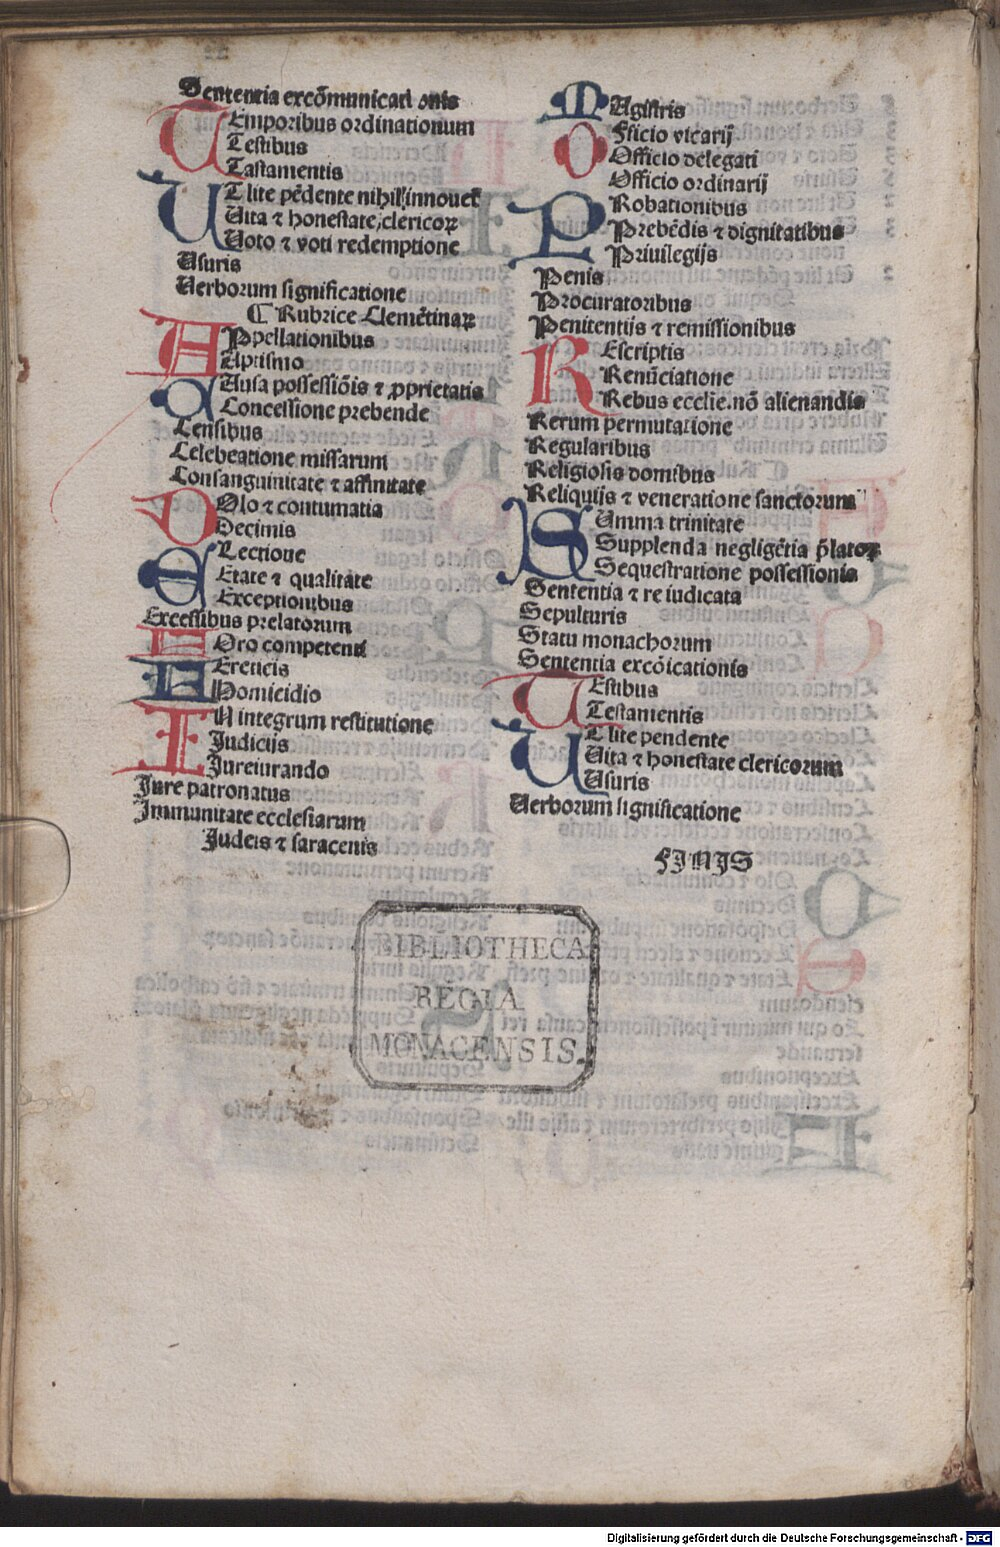 Sententia excōmunicati onis
TEmporibus ordinationum
Testibus
Tastamentis
UT lite pēdente nihil innouet̄
Uita ⁊ honestate clericoꝝ
Uoto ⁊ voti redemptione
Usuris
Uerborum significatione
¶ Rubrice Clemētinaꝝ
APpellationibus
Baptismo
CAusa possessiōis ⁊ ꝓprietatis
Concessione prebende
Censibus
Celebeatione missarum
Consanguinitate ⁊ affinitate
DOlo ⁊ contumatia
Decimis
ELectioue
Etate ⁊ qualitate
Exceptionibus
Excessibus prelatorum
FOro competenti
HEreticis
Homicidio
IN integrum restitutione
Judicijs
Jureiurando
Jure patronatus
Immunitate ecclesiarum
Judeis ⁊ saracenis
MAgistris
OFficio vicarij
Officio delegati
Officio ordinarij
PRobationibus
Prebēdis ⁊ dignitatibus
Priuilegijs
Penis
Procuratoribus
Penitentijs ⁊ remissionibus
REscriptis
Renūciatione
Rebus ecclie. nō alienandis
Rerum permutatione
Regularibus
Religiosis domibus
Reliquijs ⁊ veneratione sanctorum
SUmma trinitate
Supplenda negligētia p̄latoꝝ
Sequestratione possessionis
Sententia ⁊ re iudicata
Sepulturis
Statu monachorum
Sententia excōicationis
TEstibus
Testamentis
UT lite pendente
Uita ⁊ honestate clericorum
Usuris
Uerborum significatione
FINIS
BIBLIOTHECA
REGIA
MONACENSIS.
Digitalisierung gefördert durch die Deutsche Forschungsgemeinschaft - DFG